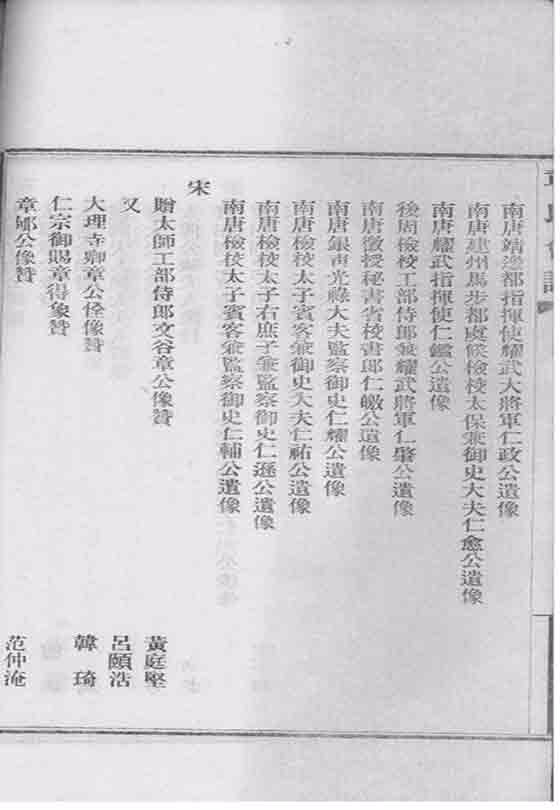 章氏會譜
南唐靖邊都指揮使耀武大將軍仁政公遺像
南唐建州馬步都虞候檢校太保兼御史大夫仁愈公遺像
南唐耀武指揮使仁鑑公遺像
後周檢校工部侍郎兼耀武將軍仁肇公遺像
南唐徵授秘書省校書郎仁皦公遺像
南唐銀青光祿大夫監察御史仁耀公遺像
南唐檢校太子賓客兼御史大夫仁祐公遺像
南唐檢校太子右庶子兼監察御史仁遜公遺像
南唐檢校太子賓客兼監察御史仁輔公遺像
宋
贈太師工部侍郎文谷章公像贊 黃庭堅
又 呂頤浩
大理寺卿章公佺像贊 韓琦
仁宗御賜章得象贊
章郇公像贊 范仲淹